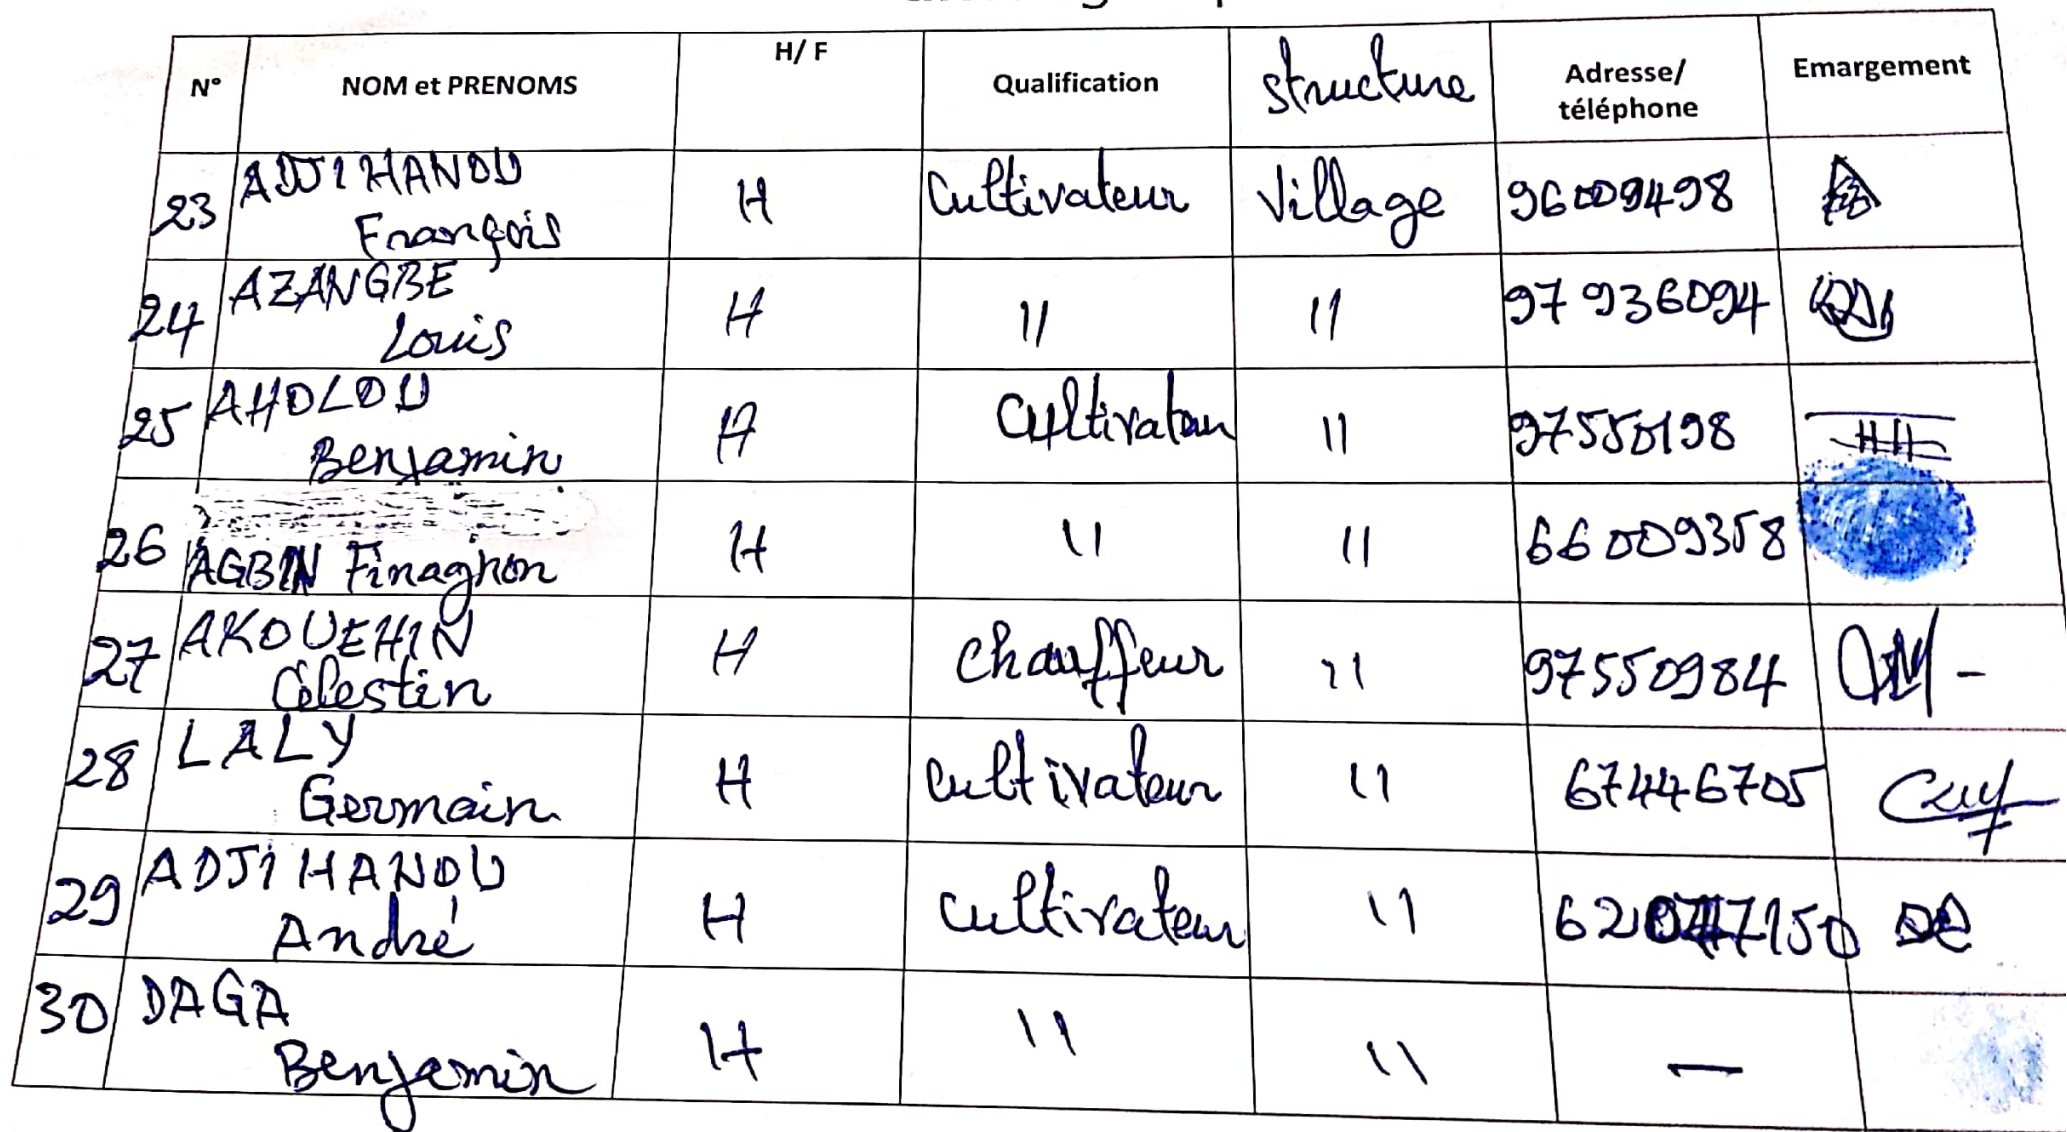 N° NOM et PRENOMS H/ F Qualification structure Adresse/ téléphone Emargement
23 ADJIHANOU François H Cultivateur Village 96009498
24 AZANGBE Louis H " " 97 936094
25 AHOLOU Benjamin H Cultivateur " 97550198
26 AGBIN Finagnon H " " 66009358
27 AKOUEHIN Célestin H Chauffeur " 97550984
28 LALY Germain H Cultivateur " 67446705
29 ADJIHANOU André H cultivateur "
30 DAGA Benjamin H " " —